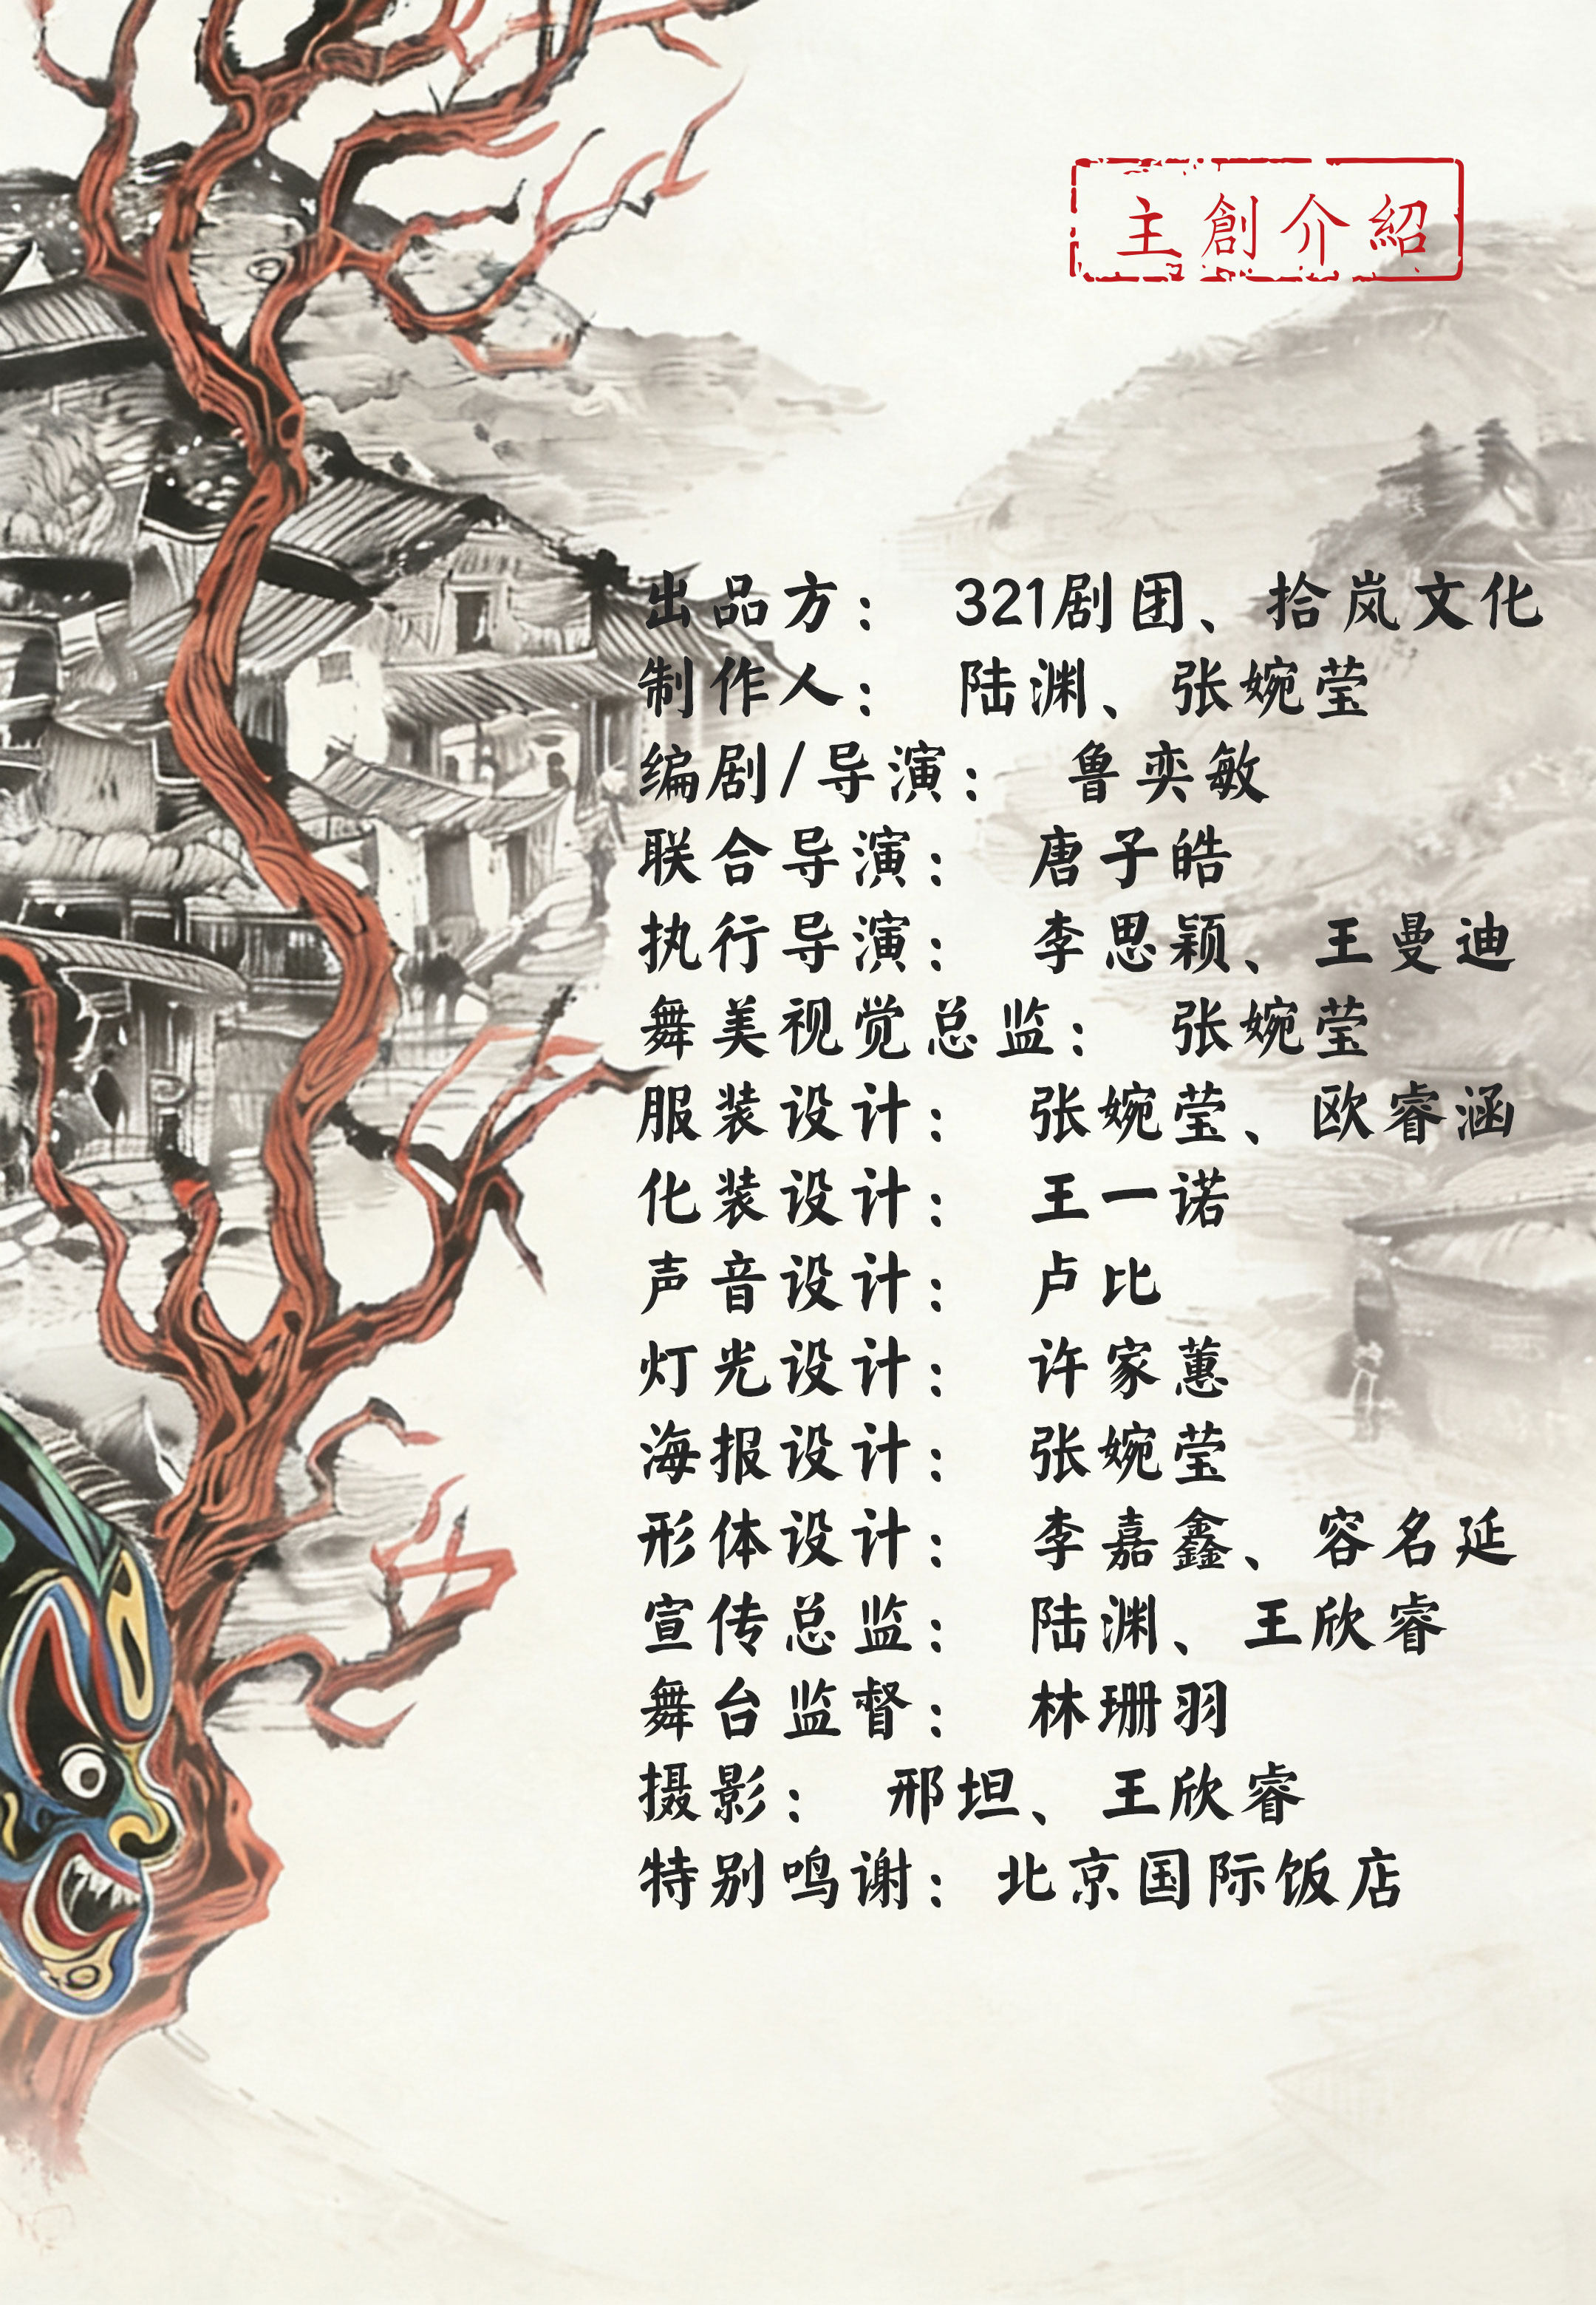 主創介紹
出品方： 321剧团、拾岚文化
制作人： 陆渊、张婉莹
编剧/导演： 鲁奕敏
联合导演： 唐子皓
执行导演： 李思颖、王曼迪
舞美视觉总监： 张婉莹
服装设计： 张婉莹、欧睿涵
化装设计： 王一诺
声音设计： 卢比
灯光设计： 许家蕙
海报设计： 张婉莹
形体设计： 李嘉鑫、容名延
宣传总监： 陆渊、王欣睿
舞台监督： 林珊羽
摄影： 邢坦、王欣睿
特别鸣谢：北京国际饭店